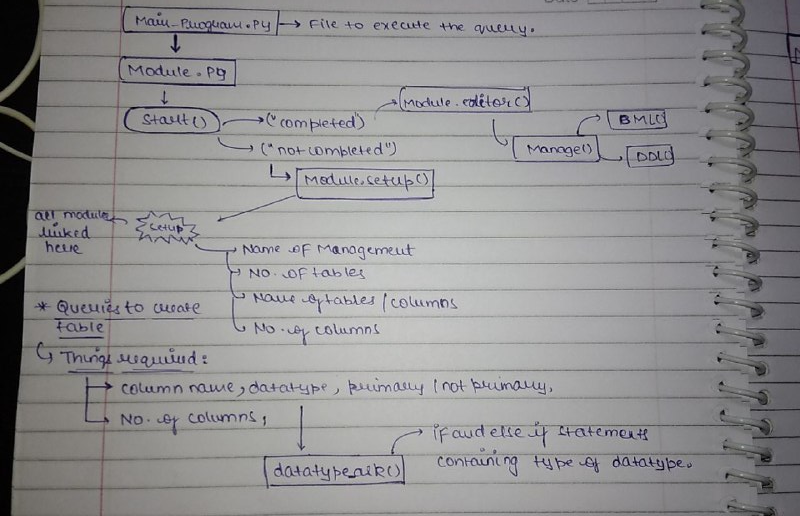 Main_Program.Py → File to execute the query.
Module.Py
Start()
("completed")
Module.editor()
("not completed")
Manage()
BML()
DDL()
Module.setup()
all module linked here
setup
Name of Management
No. of tables
Name of tables / columns
No. of columns
* Queries to create
table
Things required:
column name, datatype, primary / not primary,
No. of columns,
datatype_ask()
if and else if statements
containing type of datatype.